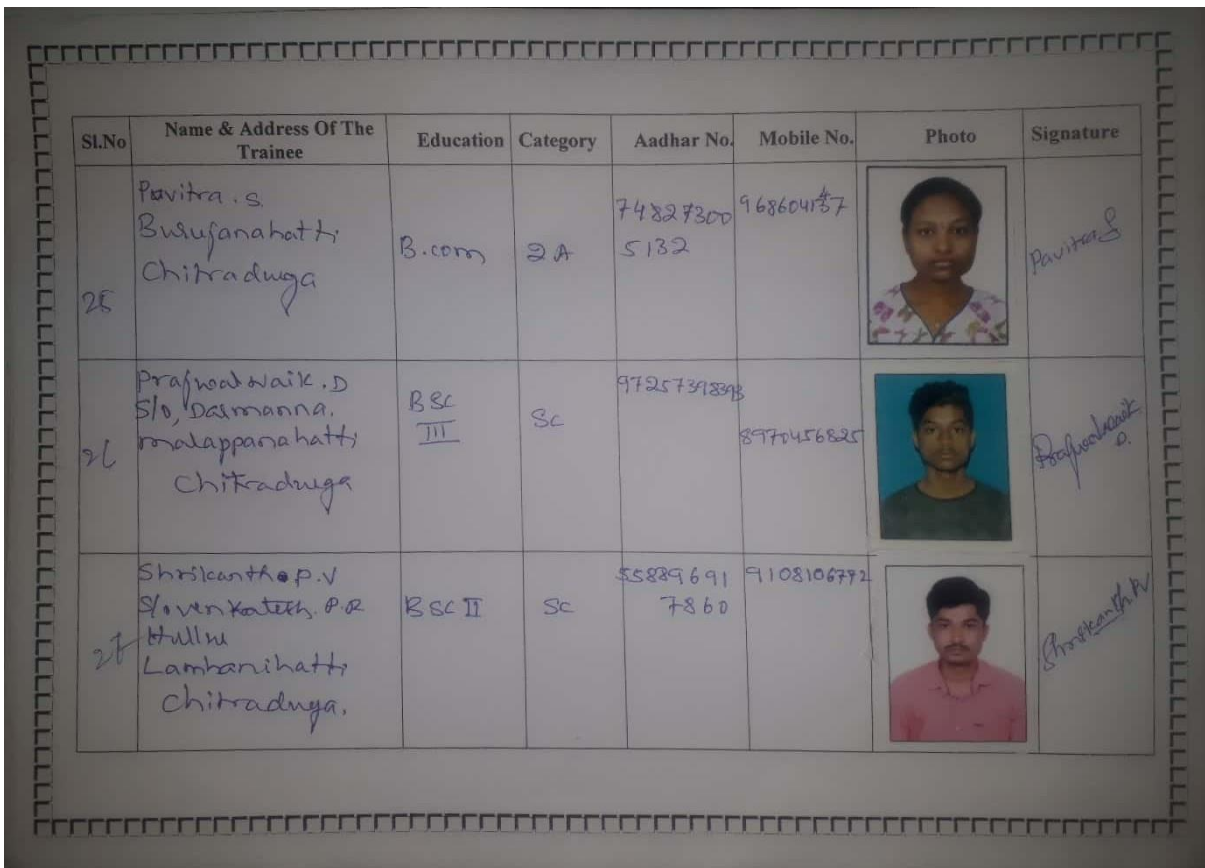 Sl.No Name & Address Of The Trainee Education Category Aadhar No. Mobile No. Photo Signature
25
Pavitra . S.
Burujanahatti
Chitraduga
B.com
2A
74827300
5132
Pavitra S
26
Prajwal Naik . D
S/o, Dasmanna,
malappanahatti
Chitraduga
BSC
III
SC
8970456825
Prajwal naik
D.
27
Shrikanth P.V
S/o venkatesh. P.R
Lambanihatti
Chitraduga.
BSC II
SC
55889691
7860
9108106792
Shrikanth PV